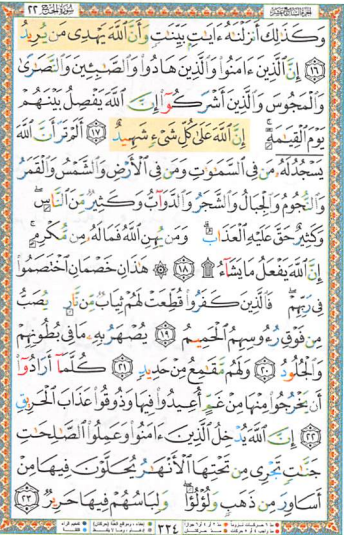 سورة الحج ٢٢
وَكَذَٰلِكَ أَنزَلْنَٰهُ ءَايَٰتٍۭ بَيِّنَٰتٍ وَأَنَّ ٱللَّهَ يَهْدِى مَن يُرِيدُ
﴿١٦﴾ إِنَّ ٱلَّذِينَ ءَامَنُوا۟ وَٱلَّذِينَ هَادُوا۟ وَٱلصَّٰبِـِٔينَ وَٱلنَّصَٰرَىٰ
وَٱلْمَجُوسَ وَٱلَّذِينَ أَشْرَكُوٓا۟ إِنَّ ٱللَّهَ يَفْصِلُ بَيْنَهُمْ
يَوْمَ ٱلْقِيَٰمَةِ ۚ إِنَّ ٱللَّهَ عَلَىٰ كُلِّ شَىْءٍ شَهِيدٌ ﴿١٧﴾ أَلَمْ تَرَ أَنَّ ٱللَّهَ
يَسْجُدُ لَهُۥ مَن فِى ٱلسَّمَٰوَٰتِ وَمَن فِى ٱلْأَرْضِ وَٱلشَّمْسُ وَٱلْقَمَرُ
وَٱلنُّجُومُ وَٱلْجِبَالُ وَٱلشَّجَرُ وَٱلدَّوَآبُّ وَكَثِيرٌ مِّنَ ٱلنَّاسِ ۖ
وَكَثِيرٌ حَقَّ عَلَيْهِ ٱلْعَذَابُ ۗ وَمَن يُهِنِ ٱللَّهُ فَمَا لَهُۥ مِن مُّكْرِمٍ ۚ
إِنَّ ٱللَّهَ يَفْعَلُ مَا يَشَآءُ ۩ ﴿١٨﴾ ۞ هَٰذَانِ خَصْمَانِ ٱخْتَصَمُوا۟
فِى رَبِّهِمْ ۖ فَٱلَّذِينَ كَفَرُوا۟ قُطِّعَتْ لَهُمْ ثِيَابٌ مِّن نَّارٍ يُصَبُّ
مِن فَوْقِ رُءُوسِهِمُ ٱلْحَمِيمُ ﴿١٩﴾ يُصْهَرُ بِهِۦ مَا فِى بُطُونِهِمْ
وَٱلْجُلُودُ ﴿٢٠﴾ وَلَهُم مَّقَٰمِعُ مِنْ حَدِيدٍ ﴿٢١﴾ كُلَّمَآ أَرَادُوٓا۟
أَن يَخْرُجُوا۟ مِنْهَا مِنْ غَمٍّ أُعِيدُوا۟ فِيهَا وَذُوقُوا۟ عَذَابَ ٱلْحَرِيقِ
﴿٢٢﴾ إِنَّ ٱللَّهَ يُدْخِلُ ٱلَّذِينَ ءَامَنُوا۟ وَعَمِلُوا۟ ٱلصَّٰلِحَٰتِ
جَنَّٰتٍ تَجْرِى مِن تَحْتِهَا ٱلْأَنْهَٰرُ يُحَلَّوْنَ فِيهَا مِنْ
أَسَاوِرَ مِن ذَهَبٍ وَلُؤْلُؤًا ۖ وَلِبَاسُهُمْ فِيهَا حَرِيرٌ ﴿٢٣﴾
٣٣٤